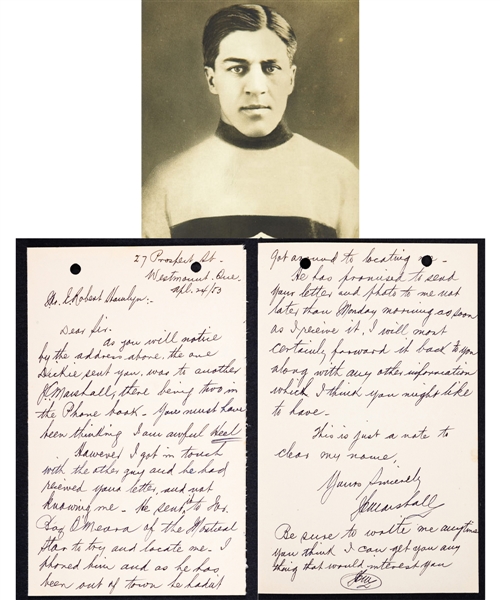 27 Prospect St.
Westmount. Que
Apl. 24/53
E. Robert Hamlyn:-
Dear Sir.
as you will notice
by the address above, the one
Dickie sent you, was to another
J.C. Marshall, there being two in
the Phone book - You must have
been thinking I am awful Heel
However I got in touch
with the other guy and he had
received your letter, and not
knowing me - He sent it to
O'Meara of the Montreal
Star to try and locate me. I
phoned him and as he has
been out of town he hadn't
got around to locating me -
He has promised to send
your letter and photo to me not
later than Monday morning as soon
as I receive it, I will most
certainly forward it back to you
along with any other information
which I think you might like
to have -
This is just a note to
clear my name,
Yours Sincerely
JCMarshall
Be sure to write me anytime
you think I can get you any
thing that would interest you